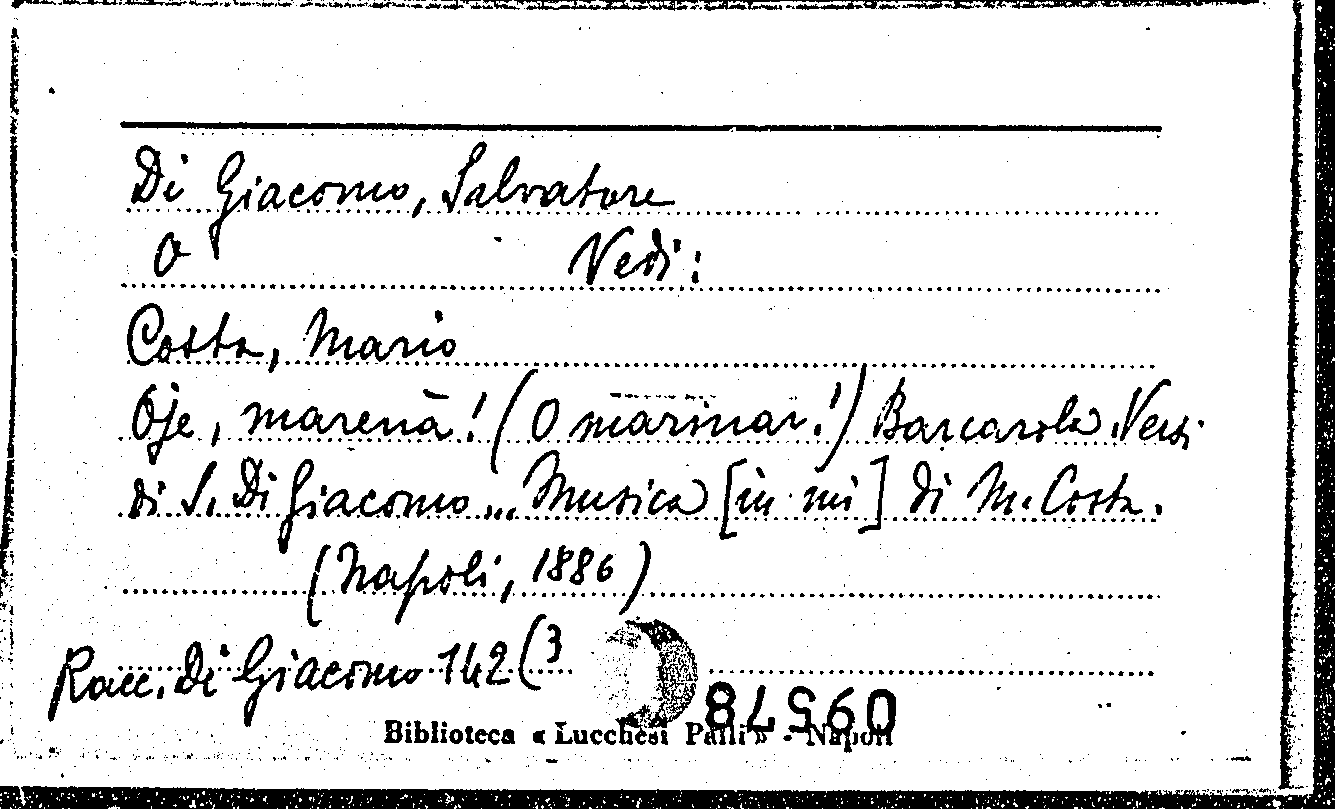 Di Giacomo, Salvatore
O Vedi:
Costa, Mario
Oje, marenà! (O marinar!) Barcarola. Versi
di S. Di Giacomo ... Musica [in mi] di M. Costa.
(Napoli, 1886)
Racc. Di Giacomo 142 (3
Biblioteca « Lucchesi Palli » - Napoli